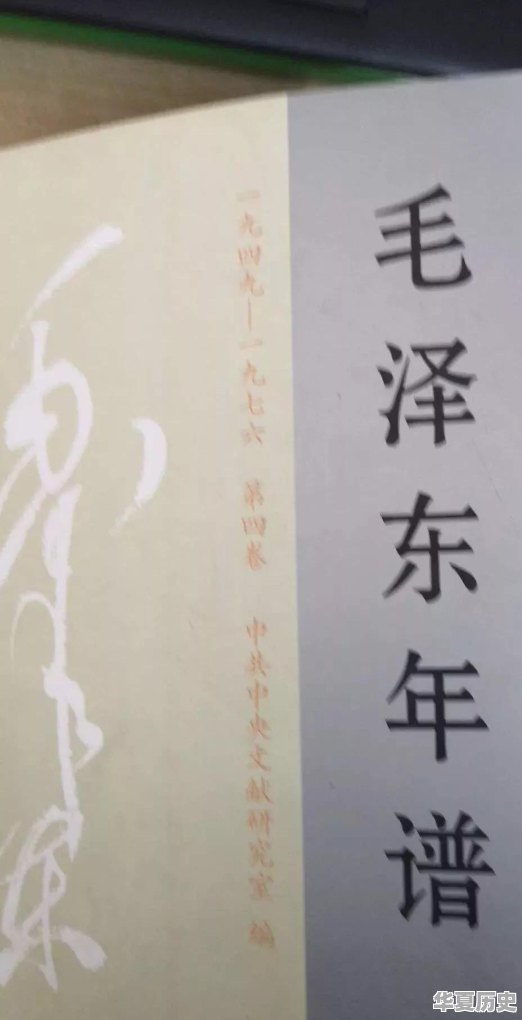 毛泽东年谱
一九四九—一九七六 第四卷 中共中央文献研究室 编
华夏历史